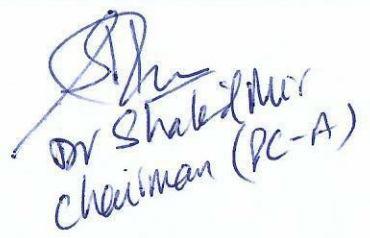 Dr Shakil Mir
Chairman (PC-A)